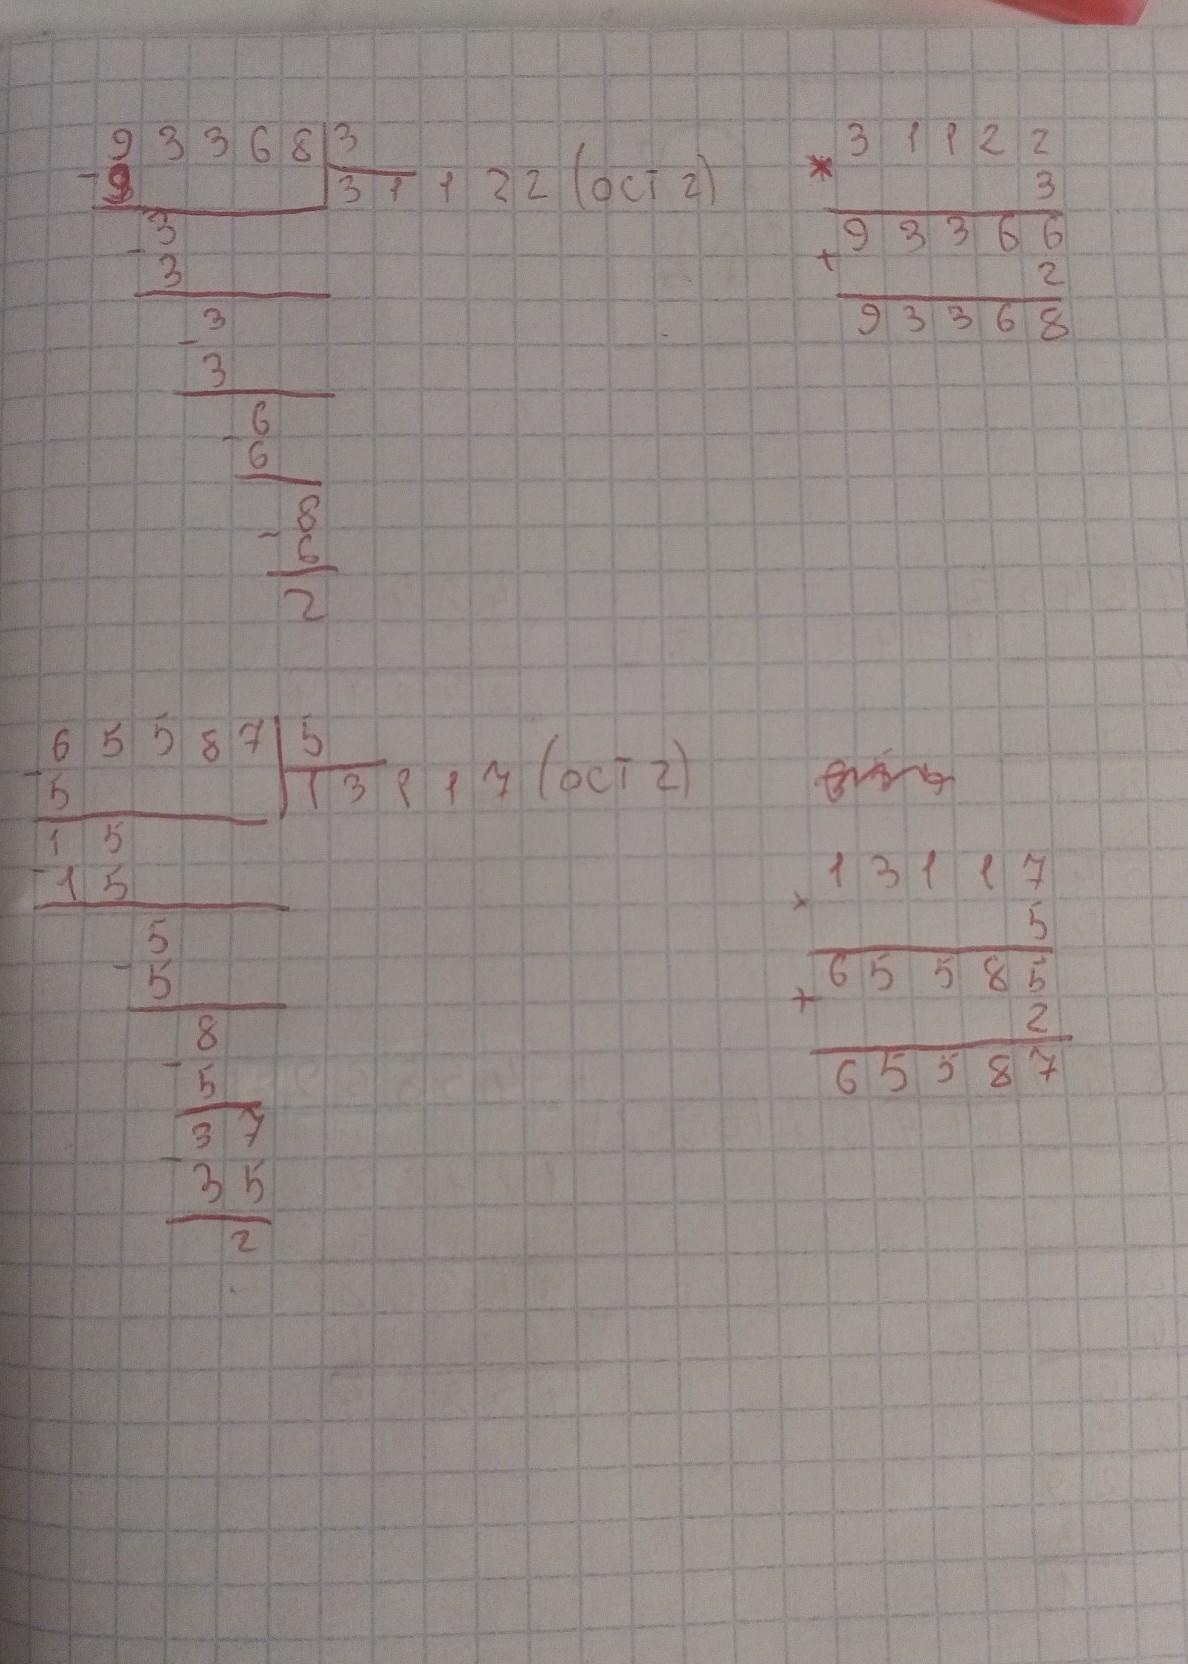 93368 3
- 9 31122 (ост 2)
3
- 3
3
- 3
6
- 6
8
- 6
2
31122
* 3
93366
+ 2
93368
65587 5
- 5 13117 (ост 2)
15
- 15
5
- 5
8
- 5
37
- 35
2
13117
× 5
65585
+ 2
65587